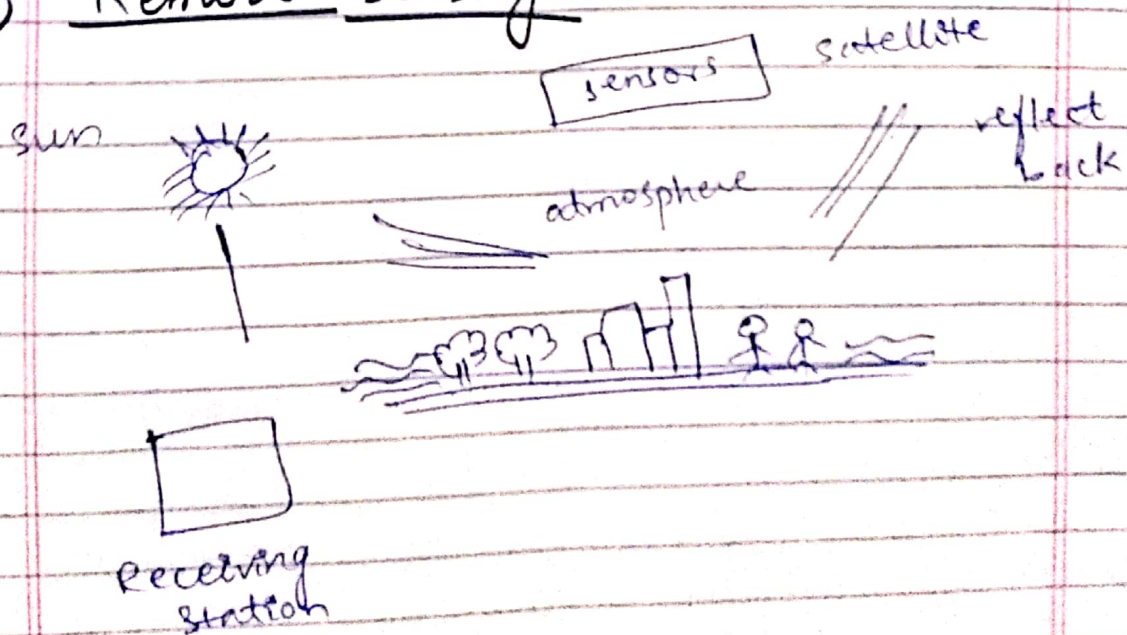 Remote
satellite
sensors
sun
reflect
back
atmosphere
Receiving
station